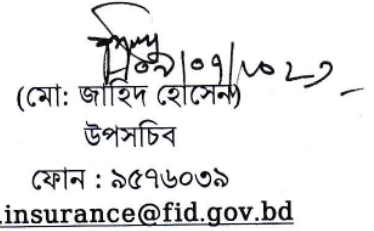 (মো: জাহিদ হোসেন)
উপসচিব
ফোন : ৯৫৭৬০৩৯
.insurance@fid.gov.bd